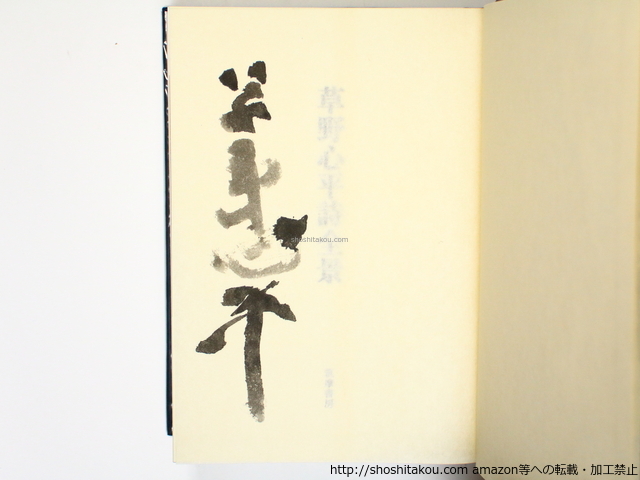 草野心平
草野心平詩全景
筑摩書房
shoshitakou.com
http://shoshitakou.com amazon等への転載・加工禁止